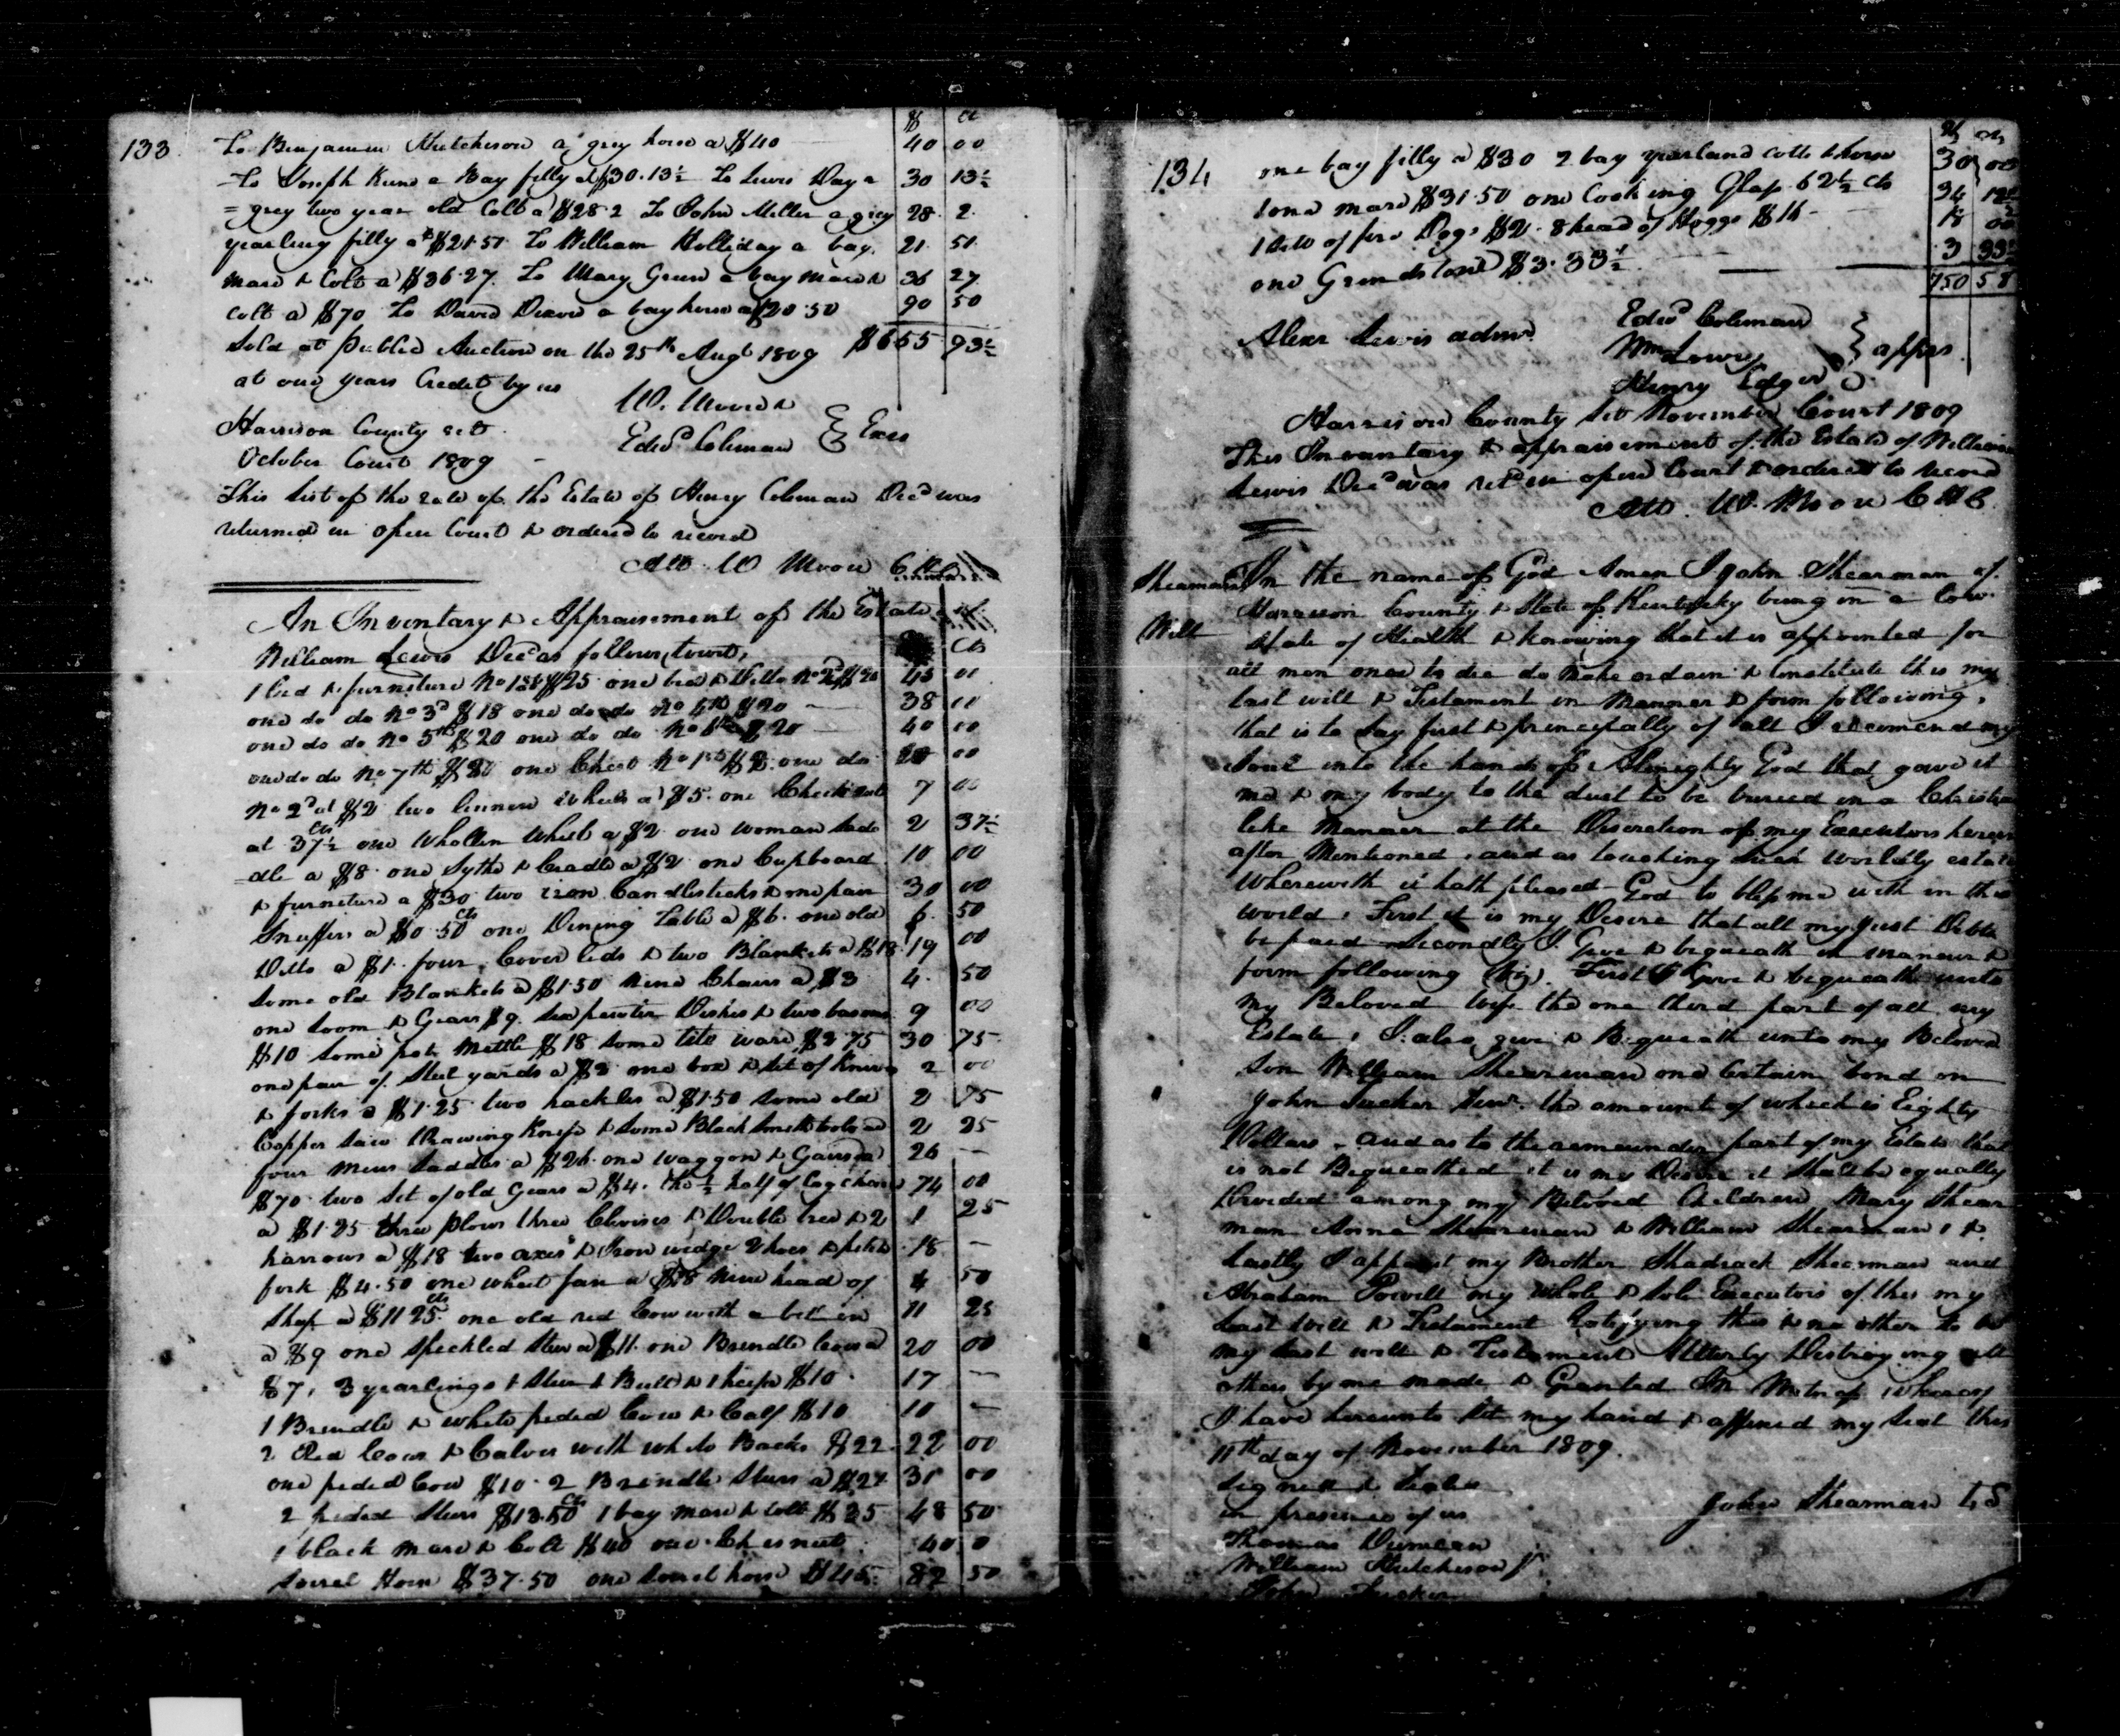 133
$ Cts
To Benjamin Hutcheson a grey horse a $40 40 00
To Joseph Kune a Bay filly a $30.13½ To Lewis Day a 30 13½
= grey two year old Colt a $28.2 To John Miller a grey 28. 2.
yearling filly at $21.51 To William Holliday a bay 21. 51.
mare & Colt a $36.27. To Mary Green a bay mare & 36 27
Colt a $70 To David Dixon a bay horse a $20.50 90 50
Sold at Publick Auction on the 25th Augt 1809 $655 93½
at one years Credit by us
W. Moore &
Edwd Coleman } Exrs
Harrison County sct.
October Court 1809
This list of the sale of the Estate of Henry Coleman Decd was
returned in open Court & ordered to record
Att. W Moore CHC
An Inventory & Appraisement of the Estate of
William Lewis Decd as follows, towit, Cts
1 bed & furniture No 1st $25 one bed & ditto No 2d $20 45 00
one do do No 3d $18 one do do No 4th $20 38 00
one do do No 5th $20 one do do No 6th $20 40 00
one do do No 7th one Chest No 1st one do 00
No 2d at $2 two linnen wheels a $5. one Check reel 7 00
at 37½ Cts one Whollen Wheel a $2 one woman sad 2 37½
=dle a $8 one Sythe & Cradle a $2 one Cupboard 10 00
& furniture a $30 two iron Candlesticks & one pair 30 00
Snuffers a $0.50 Cts one Dining Table a $6. one old 6. 50
Ditto a $1. four Cover lids & two Blankets a $18 19 00
Some old Blankets a $1.50 nine Chairs a $3 4. 50
one Loom & Gears $9. six pewter Dishes & two basons 9 00
$10 some pot mettle $18 some tite ware $2.75 30 75
one pair of Steel yards a $2 one box & set of Knives 2 00
& forks a $1.25 two hackles a $1.50 some old 2 75
Copper saw Drawing Knife & some Black Smith tools a 2 25
four mens saddles a $26. one waggon & Gairs a 26 —
$70 two set of old Gears a $4. the ½ half of Cag chairs 74 00
a $1.25 three plows three Clevises & Double tree & 2 1 25
harrows a $18 two axes & Iron wedge 2 hoes & pitch 18 —
fork $4.50 one wheat fan a nine head of 4 50
Sheep a $11 25 Cts one old red Cow with a bell on 11 25
a $9 one speckled Steer a $11. one Brindle Cow a 20 00
$7, 3 yearlings 1 Steer 1 Bull & 1 heifer $10. 17 —
1 Brindle & white pided Cow & Calf $10 10 —
2 Red Cows & Calves with white Backs $22. 22 00
one pided Cow $10. 2 Brindle Steers a 00
2 pided Steers $13.50 Cts 1 bay mare & Colt $35 48 50
1 black mare & Colt $40 one Chesnut 40 0
Sorrel Horse $37.50 one sorrel horse $45. 82 50
134
one bay filly a $30 2 bay yearland colts & horse 30 00
1 one mare $31.50 one Looking Glass 62½ cts 34 12½
1 sett of fire Dogs $2. 8 head of Hoggs $16 — 18 00
one Grindstone $3.33⅓ 3 33⅓
750 58
Alexr Lewis admr.
Edwd Coleman
Wm Lowry
Henry Edger } apprs
Harrison County sct November Court 1809
This Inventory & appraisement of the Estate of William
Lewis Decd was retd in open Court & ordered to record
Att. W. Moore CHC
Shearmans
Will
In the name of God Amen I John Shearman of
Harrison County & State of Kentucky being in a low
State of Health & knowing that it is appointed for
all men once to die do make ordain & Constitute this my
last will & Testament in Manner & form following,
that is to say first & principally of all I recomend my
Soul into the hands of Almighty God that gave it
me & my body to the dust to be buried in a Christian
like manner at the Discretion of my Executors herein
after Mentioned, and as touching such worldly estate
Wherewith it hath pleased God to bless me with in this
world, First it is my Desire that all my Just Debts
be paid Secondly I Give & bequeath in manner &
form following (viz). First I Give & bequeath unto
my Beloved wife the one third part of all my
Estate, I also give & Bequeath unto my Beloved
Son William Shearman one Certain bond on
John Tucker Senr. the amount of which is Eighty
Dollars — and as to the remainder part of my Estate that
is not Bequeathed it is my Desire it shall be equally
Devided among my Beloved Children Mary Shear
man Anna Shearman & William Shearman, &
Lastly I appoint my Brother Shadrack Shearman and
Abraham Powell my whole & sole Executors of this my
Last Will & Testament Ratifying this & no other to be
my last will & Testament Utterly Destroying all
others by me made & Granted In Witness whereof
I have hereunto set my hand & affixed my seal this
11th day of November 1809.
Signed & Sealed
in presence of us
John Shearman LS
Thomas Duncan
William Hutcheson Jr
John Tucker